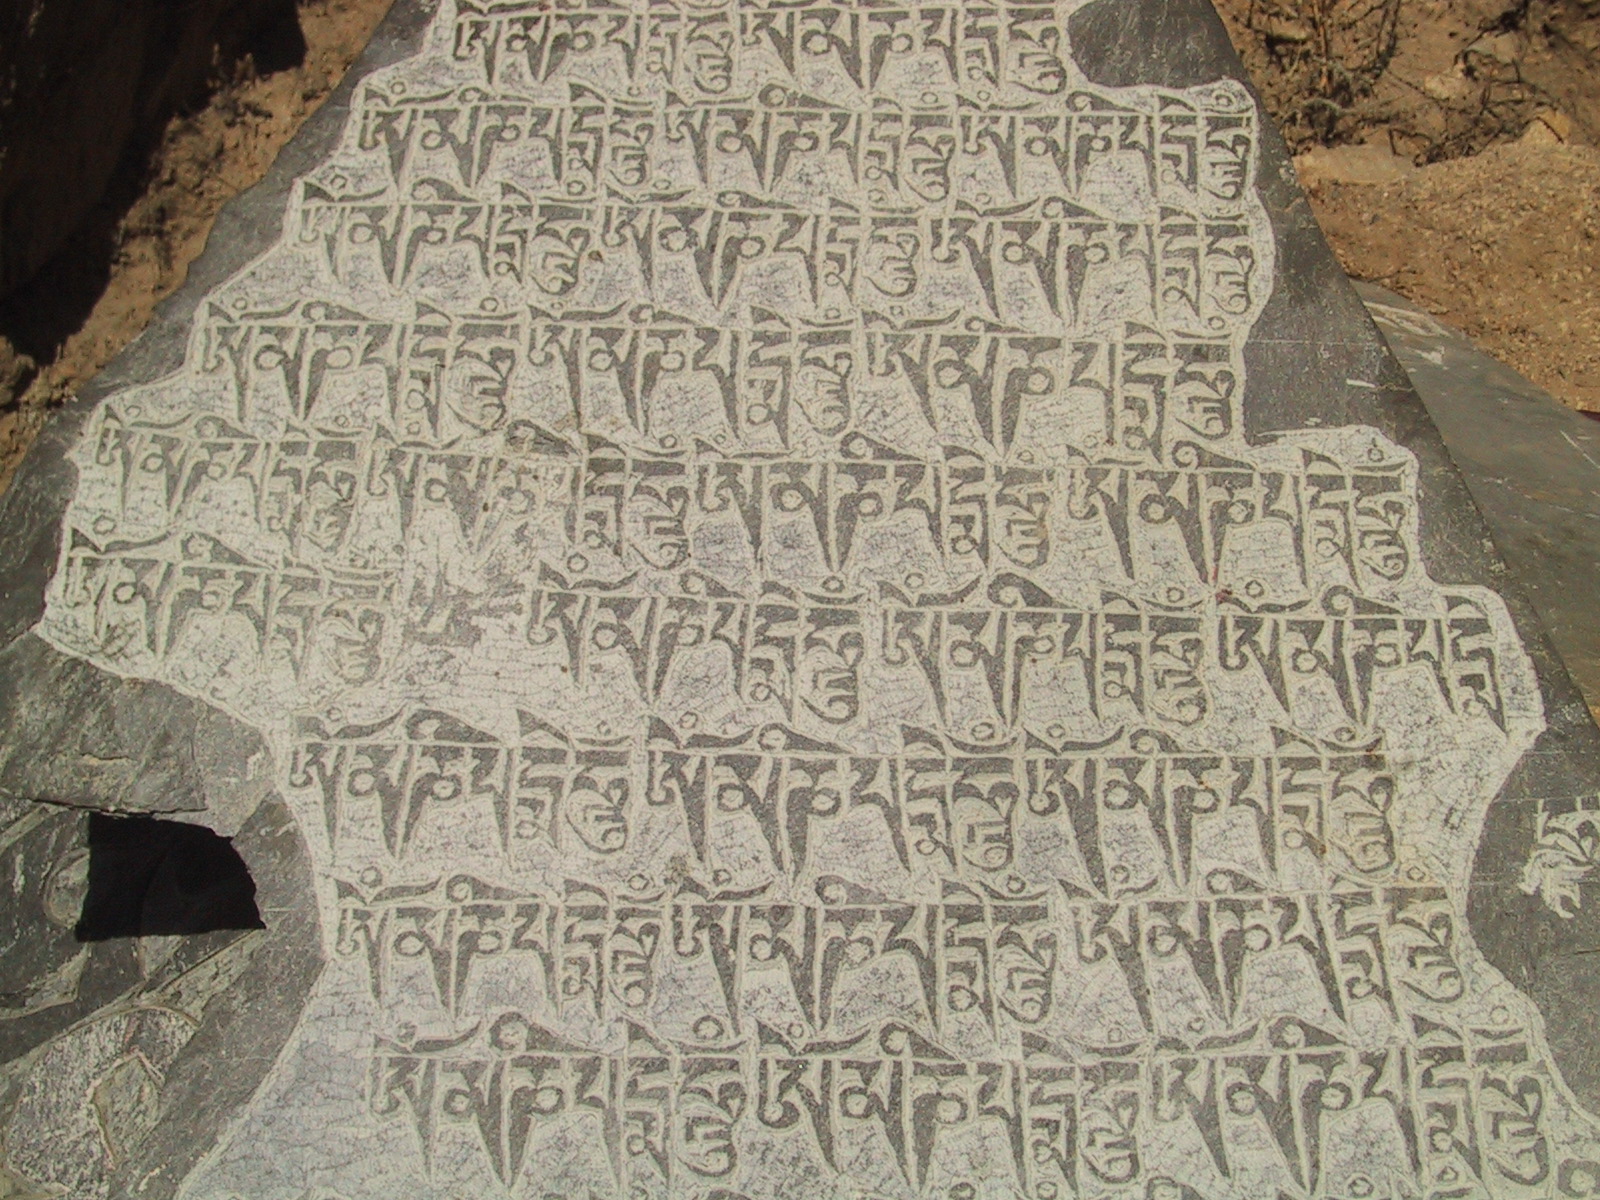 ཨོཾམཎིཔདྨེཧཱུྃ ཨོཾམཎིཔདྨེཧཱུྃ
ཨོཾམཎིཔདྨེཧཱུྃ ཨོཾམཎིཔདྨེཧཱུྃ ཨོཾམཎིཔདྨེཧཱུྃ
ཨོཾམཎིཔདྨེཧཱུྃ ཨོཾམཎིཔདྨེཧཱུྃ ཨོཾམཎིཔདྨེཧཱུྃ
ཨོཾམཎིཔདྨེཧཱུྃ ཨོཾམཎིཔདྨེཧཱུྃ ཨོཾམཎིཔདྨེཧཱུྃ
ཨོཾམཎིཔདྨེཧཱུྃ ཨོཾམཎིཔདྨེཧཱུྃ ཨོཾམཎིཔདྨེཧཱུྃ ཨོཾམཎིཔདྨེཧཱུྃ
ཨོཾམཎིཔདྨེཧཱུྃ ཨོཾམཎིཔདྨེཧཱུྃ ཨོཾམཎིཔདྨེཧཱུྃ ཨོཾམཎིཔདྨེ
ཨོཾམཎིཔདྨེཧཱུྃ ཨོཾམཎིཔདྨེཧཱུྃ ཨོཾམཎིཔདྨེཧཱུྃ
ཨོཾམཎིཔདྨེཧཱུྃ ཨོཾམཎིཔདྨེཧཱུྃ ཨོཾམཎིཔདྨེཧཱུྃ
ཨོཾམཎིཔདྨེཧཱུྃ ཨོཾམཎིཔདྨེཧཱུྃ ཨོཾམཎིཔདྨེཧཱུྃ